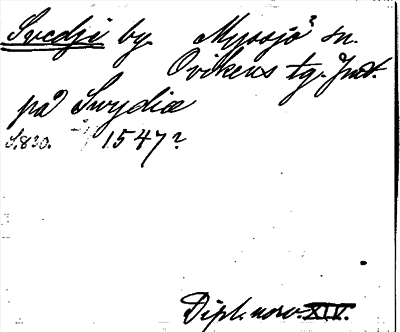 Svedji by. Myssjö sn.
Ovikens tg. Jmt.
på Swydiæ
S. 830. 1547?
Dipl. norv. XIV.